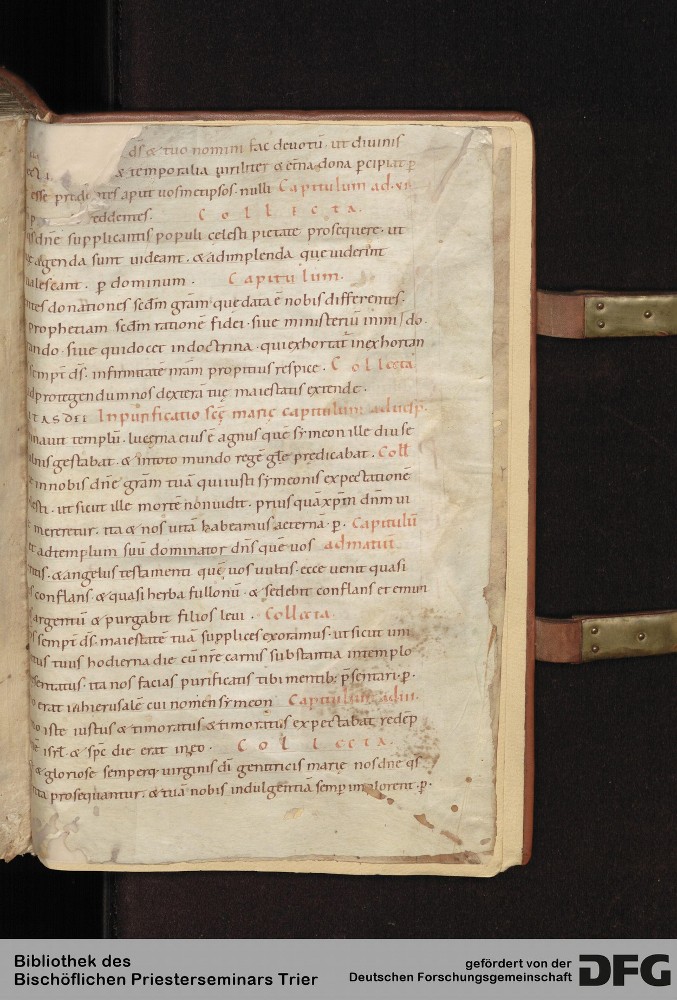 ds & tuo nomini fac deuotū · ut diuinis
& temporalia uiriliter & etna dona pcipiat p
esse nulli Capitulum ad · vi
eddentes. Collecta.
dne supplicantis populi celesti pietate prosequere · ut
agenda sunt uideant · & adimplenda que uiderint
ualeseant · p dominum · Capitulum.
tes donationes scdm gram que data ē nobis differentes.
prophetiam scdm rationē fidei · siue ministeriū inmi/do.
ando · siue qui docet in doctrina · qui exhortat in exhortan
sempt ds · infirmitatē nram propitius respice · Collecta
ad protegendum nos dexterā tuę maiestatis extende.
ITAS DEI In purificatio scę marię capitulum ad uesp.
inauit templū · lucerna eius ē agnus quē symeon ille diu se
ulnis gestabat · & in toto mundo regē glę predicabat · Coll
in nobis dne gram tuā qui iusti symeonis expectationē
esti · ut sicut ille mortē non uidit · prius quā xpm dnm ui
e mereretur · ita & nos uitā habeamus aeternā · p · Capitulū
it ad templum suū dominator dns quē uos ad matut
ritis · & angelus testamenti quē uos uultis · ecce uenit quasi
s conflans & quasi herba fullonū · & sedebit conflans et emun
s argentū & purgabit filios leui · Collecta
sempt ds · maiestatē tuā supplices exoramus · ut sicut uni
itus tuus hodierna die cū nre carnis substantia in templo
sentatus · ita nos facias purificatis tibi mentib; psentari · p.
o erat in hierusalē cui nomen symeon Capitulum ad iii.
o iste iustus & timoratus & timoratus expectabat redēp
nē isrl · & spc die erat in eo · Collecta.
& gloriose semperq uirginis di genitricis marię nos dne qs
ita prosequantur · & tuā nobis indulgentiā semp implorent · p.
Bibliothek des
Bischöflichen Priesterseminars Trier
gefördert von der
Deutschen Forschungsgemeinschaft DFG